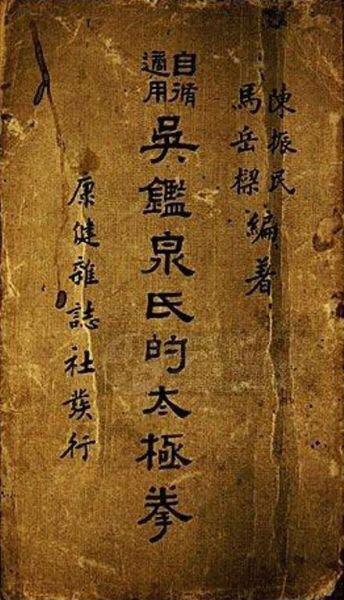 陳振民
馬岳樑
編著
自脩
適用
吳鑑泉氏的太極拳
康健雜誌社發行